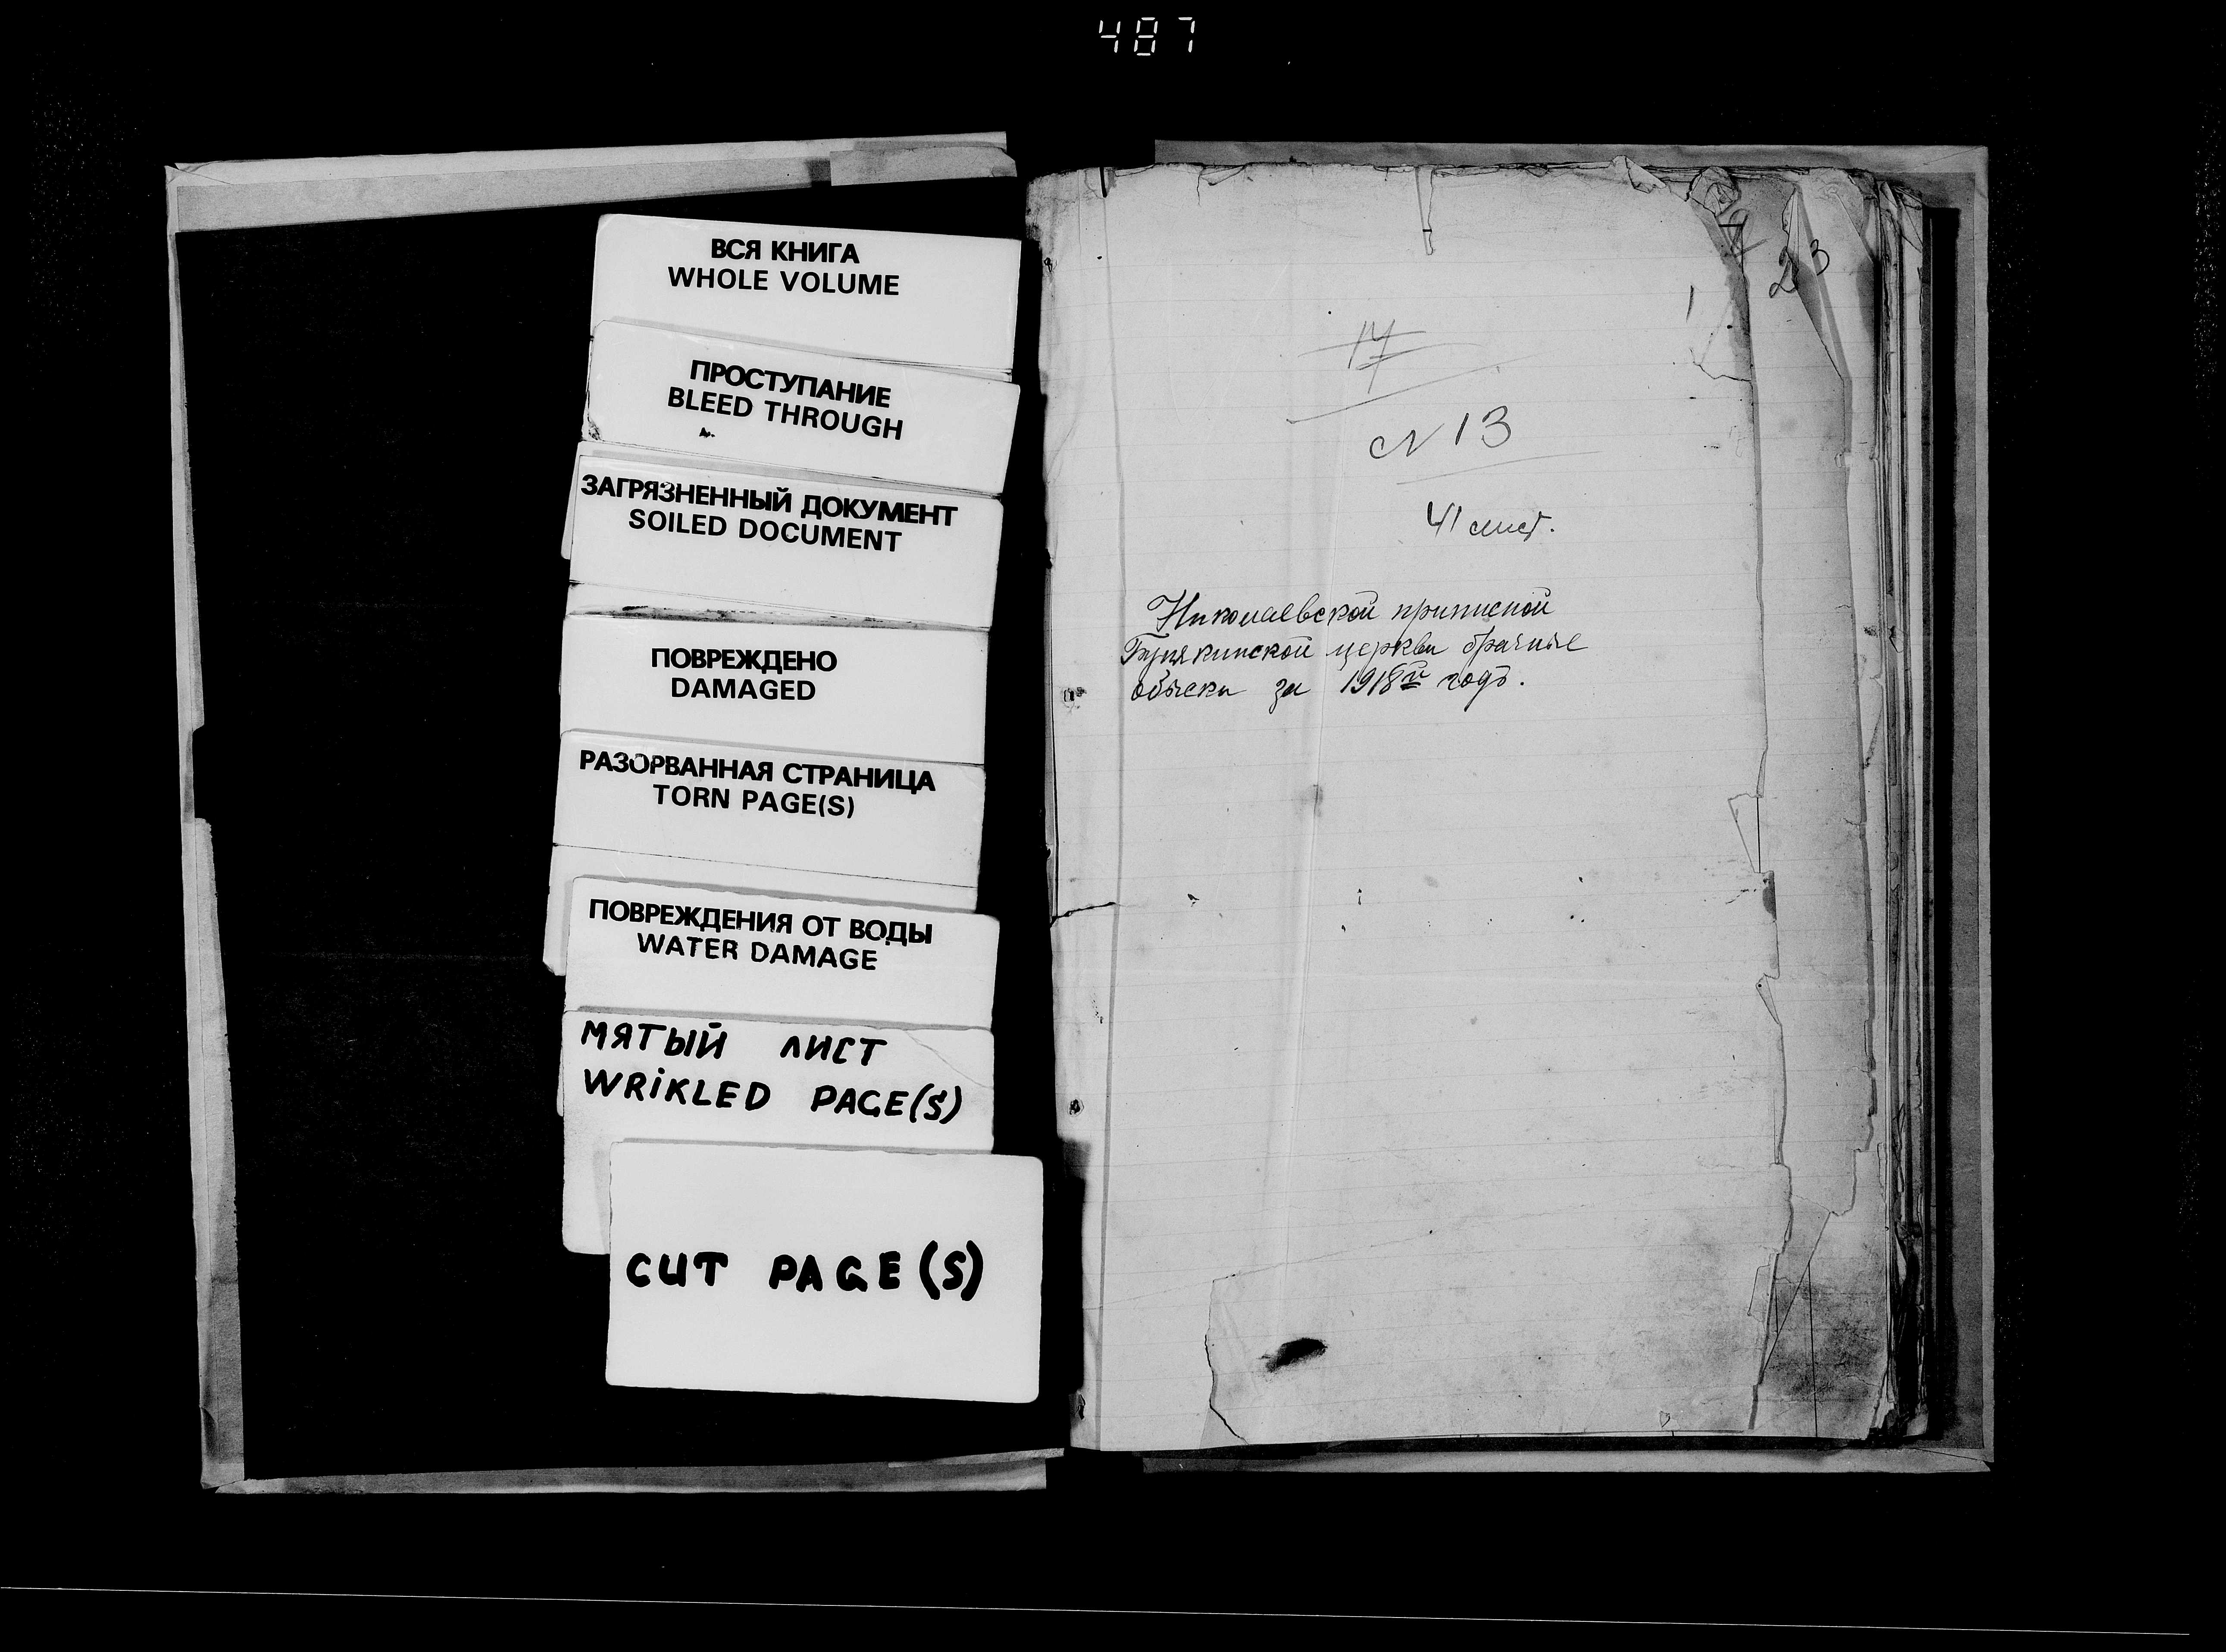 487
ВСЯ КНИГА
WHOLE VOLUME
ПРОСТУПАНИЕ
BLEED THROUGH
ЗАГРЯЗНЕННЫЙ ДОКУМЕНТ
SOILED DOCUMENT
ПОВРЕЖДЕНО
DAMAGED
РАЗОРВАННАЯ СТРАНИЦА
TORN PAGE(S)
ПОВРЕЖДЕНИЯ ОТ ВОДЫ
WATER DAMAGE
МЯТЫЙ ЛИСТ
WRIKLED PAGE(S)
CUT PAGE(S)
1
2
3
17
N 13
41 лист.
Николаевской приписной
церкви брачные
обыски за 1918й годъ.